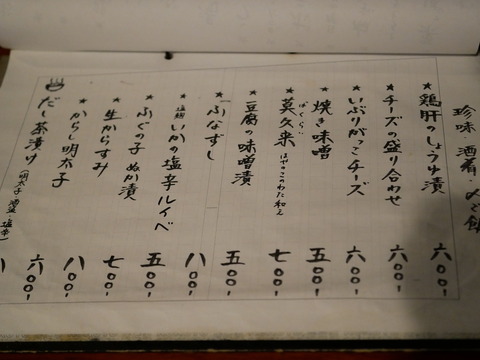 珍味 酒肴 〆ご飯
★鶏肝のしょうゆ漬 六〇〇-
★チーズの盛り合わせ 六〇〇-
★いぶりがっことチーズ 六〇〇-
★焼き味噌 五〇〇-
★莫久来 ばくらい ほやこのわた和え 七〇〇-
★豆腐の味噌漬 五〇〇-
★ふなずし 八〇〇-
★いかの塩辛ルイベ 五〇〇-
★ふぐの子ぬか漬 七〇〇-
★生からすみ 八〇〇-
★からし明太子 六〇〇-
だし茶漬け (明太子 塩辛) 八